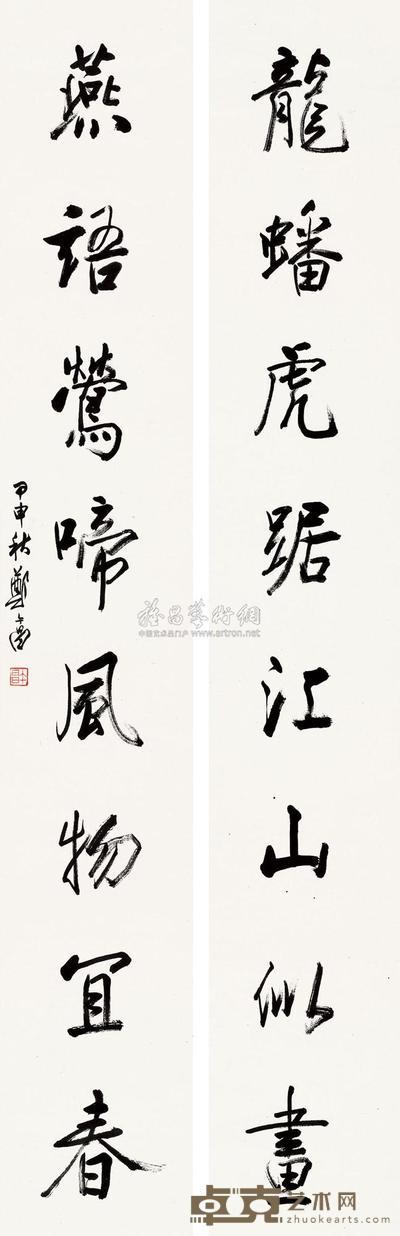 龍蟠虎踞江山似畫
燕語鶯啼風物宜春
甲申秋鄭
雅昌藝術網
中国艺术品门户 www.artron.net
卓克艺术网
zhuokearts.com